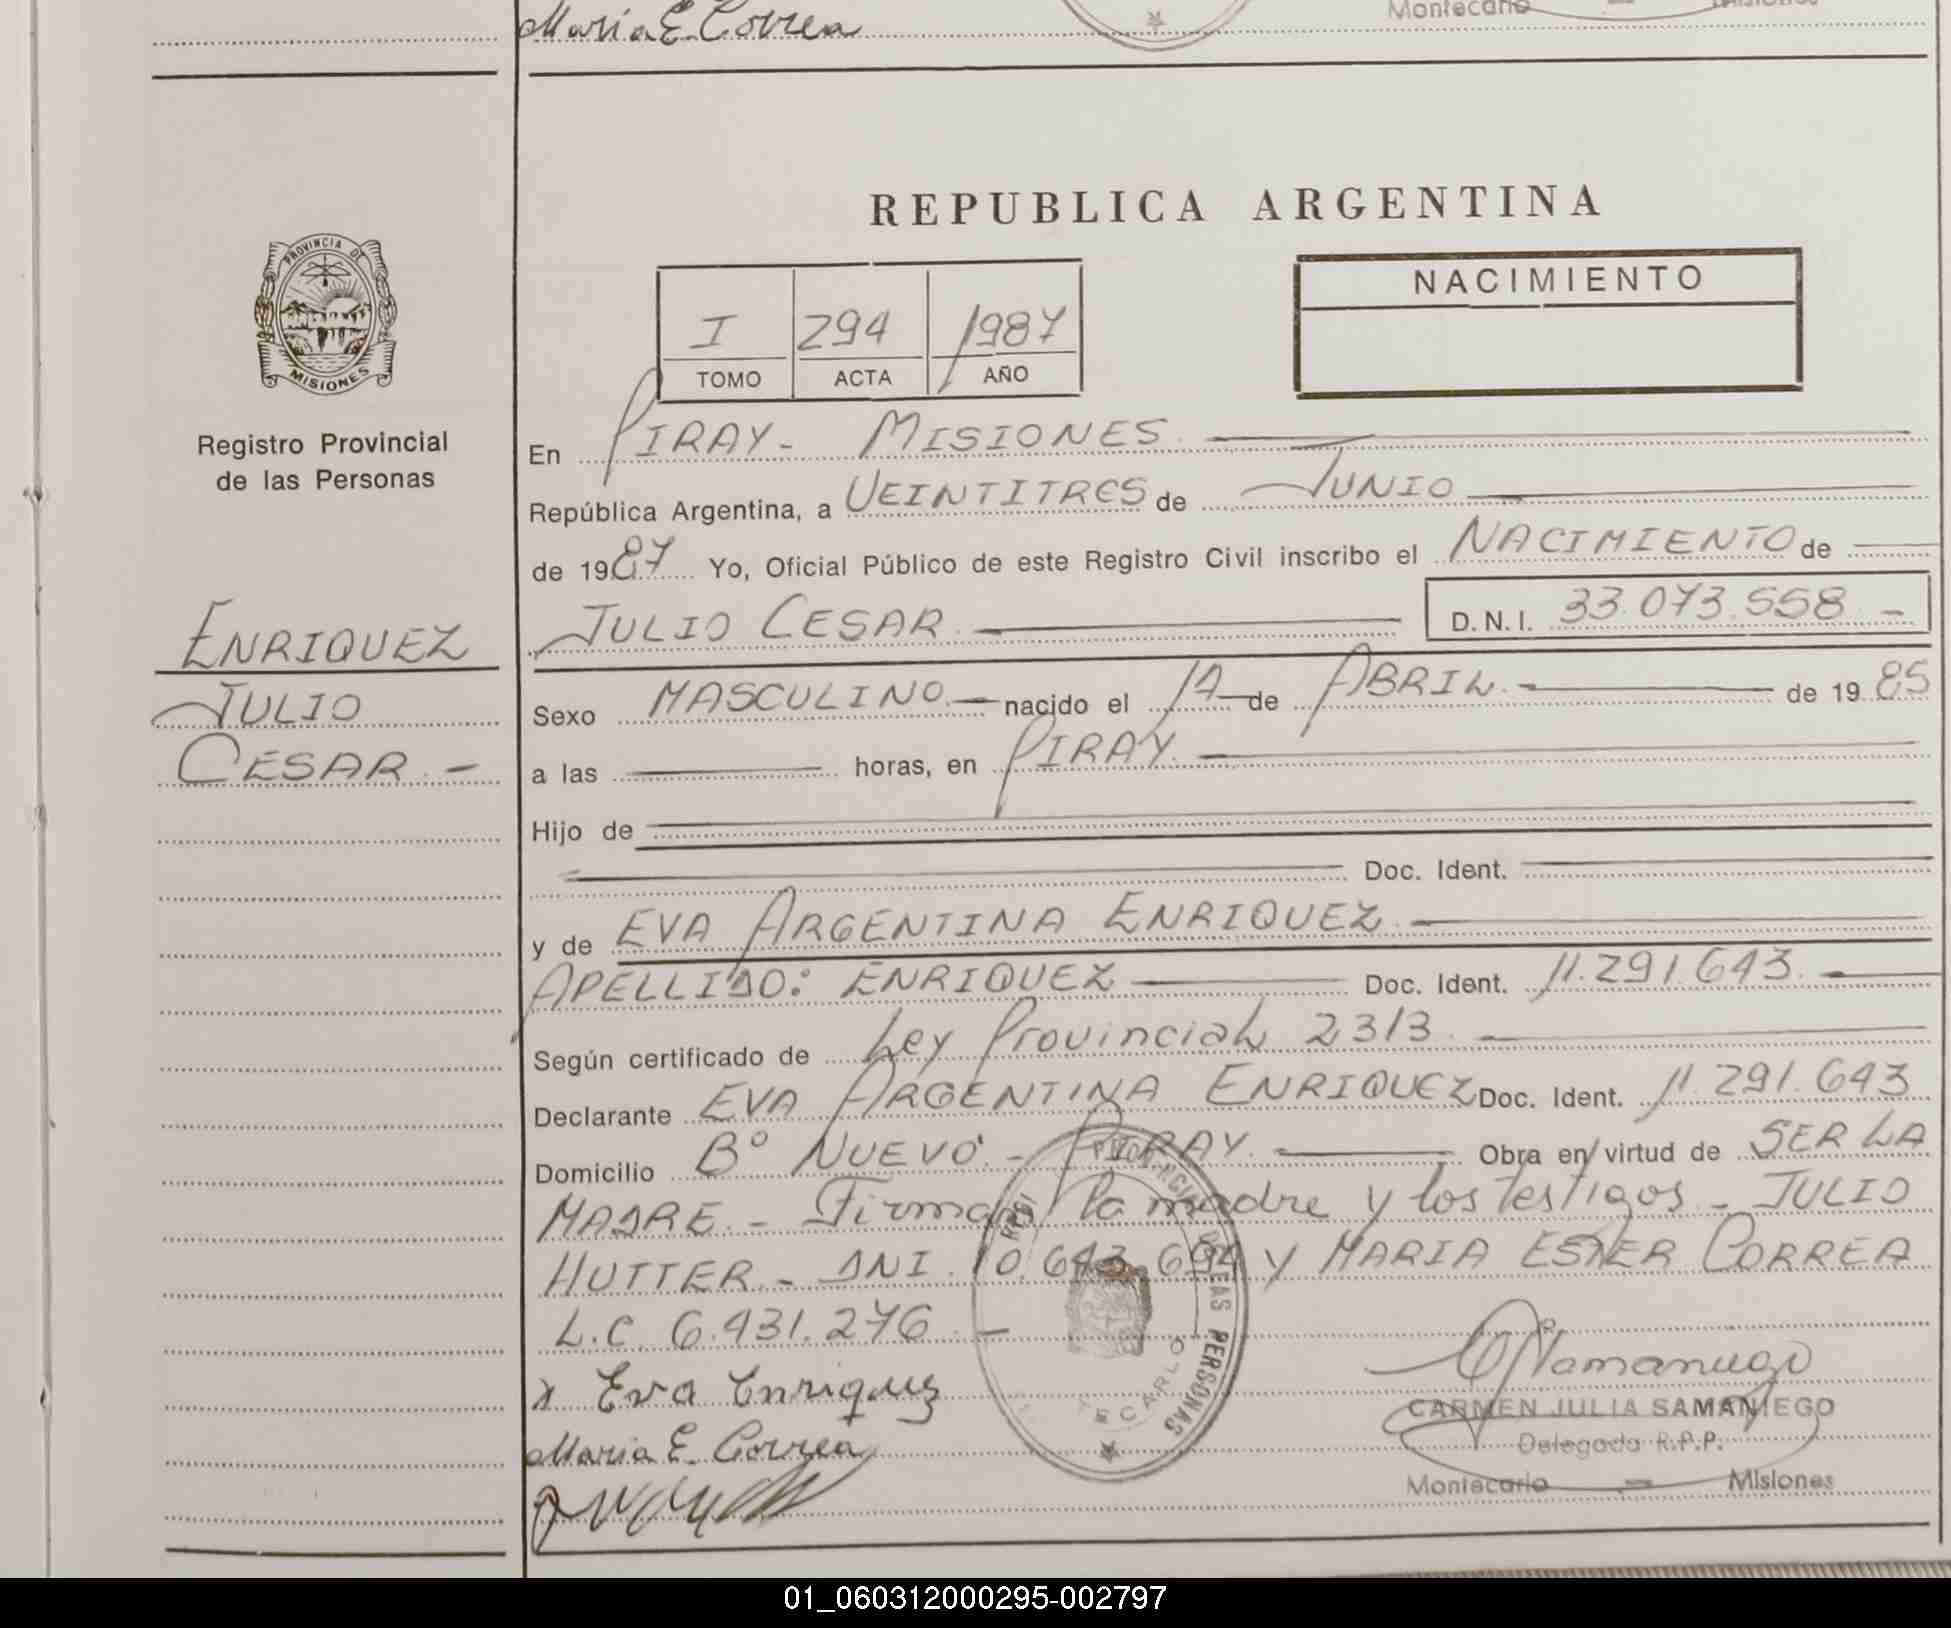 María E. Correa
Montecarlo — Misiones
REPUBLICA ARGENTINA
PROVINCIA DE
MISIONES
Registro Provincial
de las Personas
I 294 1987
TOMO ACTA AÑO
NACIMIENTO
En PIRAY - MISIONES.
República Argentina, a VEINTITRES de JUNIO
de 1987 Yo, Oficial Público de este Registro Civil inscribo el NACIMIENTO de
ENRIQUEZ
JULIO
CESAR. -
JULIO CESAR. D.N.I. 33.073.558. -
Sexo MASCULINO. - nacido el 14 de ABRIL. - de 1985
a las horas, en PIRAY.
Hijo de
Doc. Ident.
y de EVA ARGENTINA ENRIQUEZ.
APELLIDO: ENRIQUEZ Doc. Ident. 11.291.643. -
Según certificado de Ley Provincial 2313.
Declarante EVA ARGENTINA ENRIQUEZ Doc. Ident. 11.291.643
Domicilio Bº NUEVO. - PIRAY. Obra en virtud de SER LA
MADRE. - Firman la madre y los testigos - JULIO
HUTTER - DNI. 10.643.694 y MARIA ESTER CORREA
L.C. 6.431.276. -
x Eva Enriquez
María E. Correa
PROVINCIAL DE LAS PERSONAS
TECARLO
Samaniego
CARMEN JULIA SAMANIEGO
Delegada R.P.P.
Montecarlo — Misiones
01_060312000295-002797